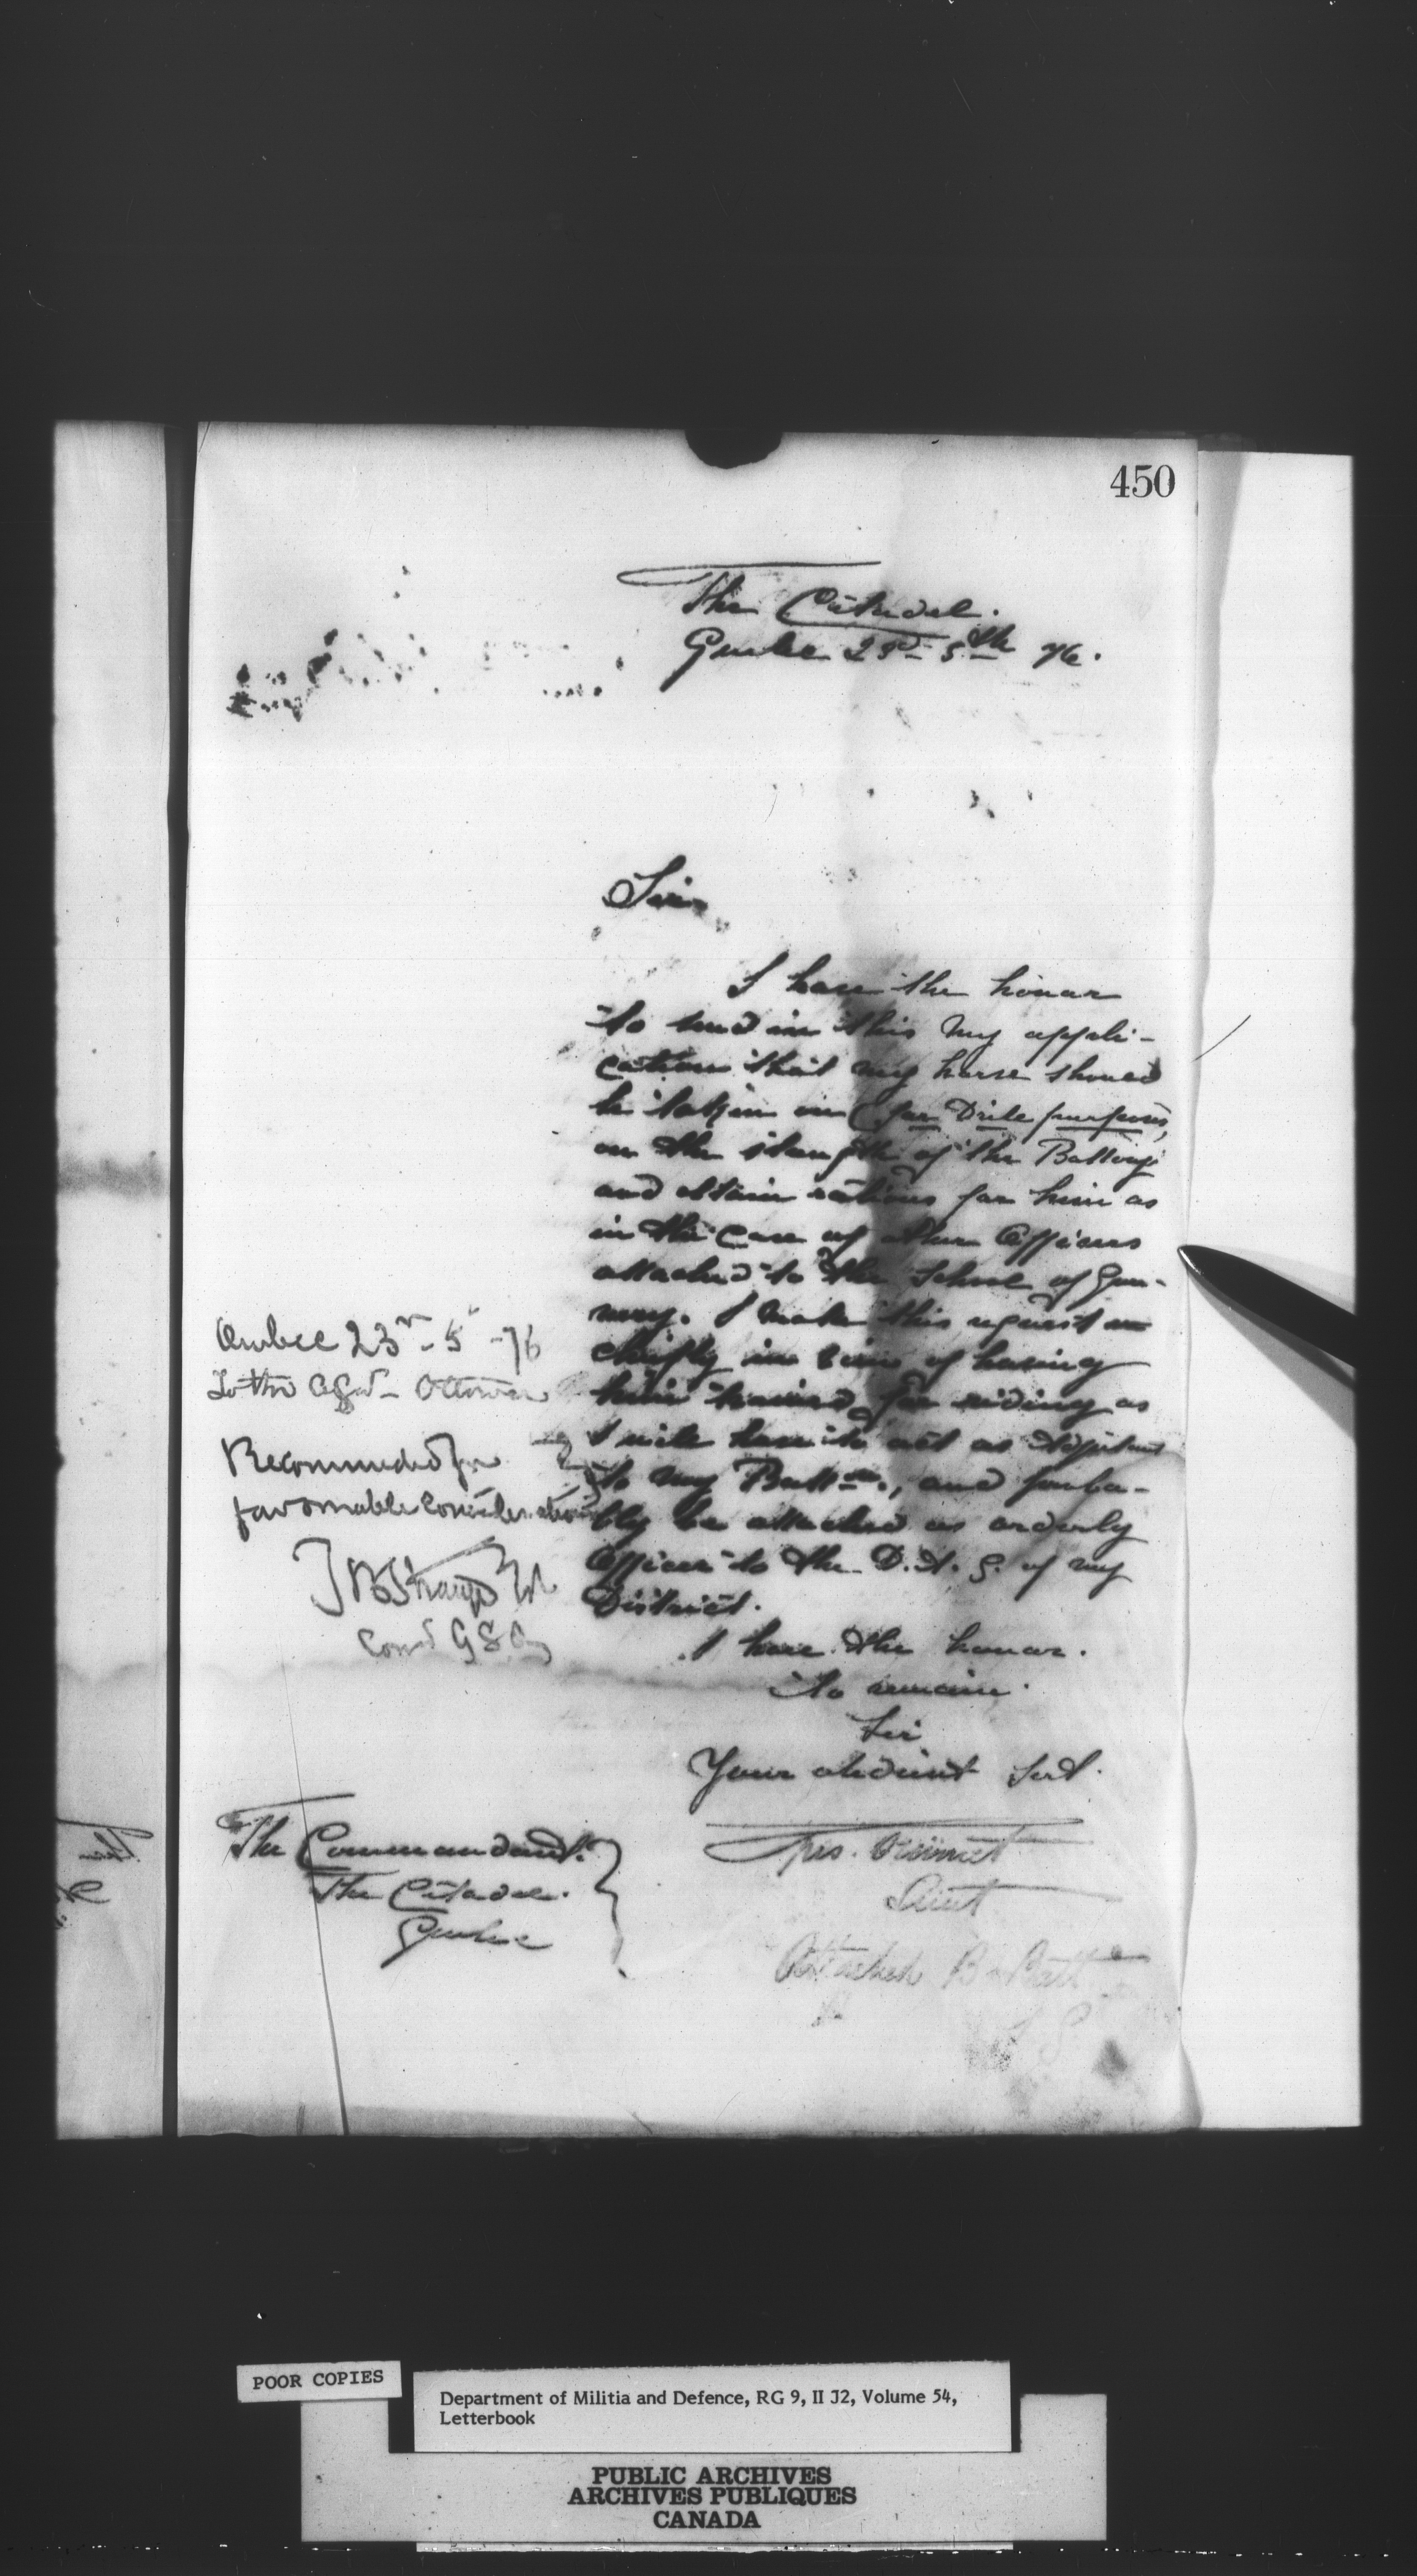 450
The Citadel.
Quebec 23rd 5th 76.
Sir,
I have the honour
to send in this my appli-
cation that my horse should
be taken in (for Drill purposes,
on the strength of the Battery
and obtain rations for him as
in the case of other Officers
attached to the School of Gun-
nery. I make this request
chiefly in view of having
him trained for riding as
I will have to act as Adjutant
to my Battn., and proba-
bly be attached as orderly
Officer to the D.A.G. of my
District.
I have the honour.
to remain.
Sir
Your obedient Sert.
Lieut
Attached B Batt
The Commandant.
The Citadel.
Quebec
Quebec 23rd - 5 - 76
To the Ottawa
Recommended for
favourable consideration
TBStrange
Comd
POOR COPIES
Department of Militia and Defence, RG 9, II J2, Volume 54,
Letterbook
PUBLIC ARCHIVES
ARCHIVES PUBLIQUES
CANADA